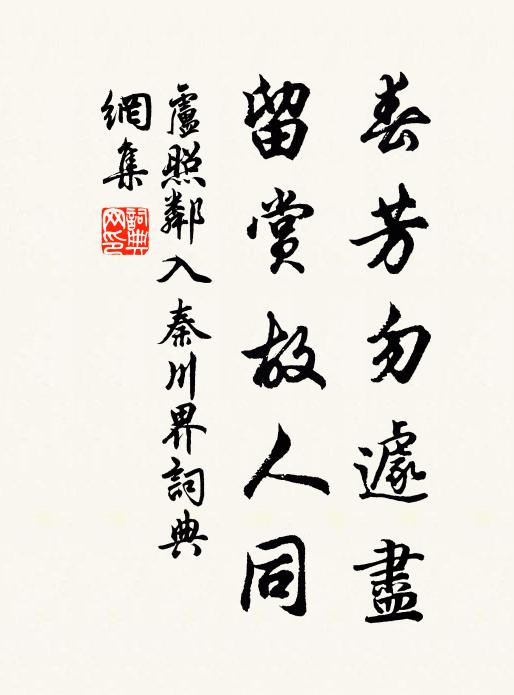 春芳勿遽盡
留賞故人同
盧照鄰入秦川界詞典
網集
詞典網印